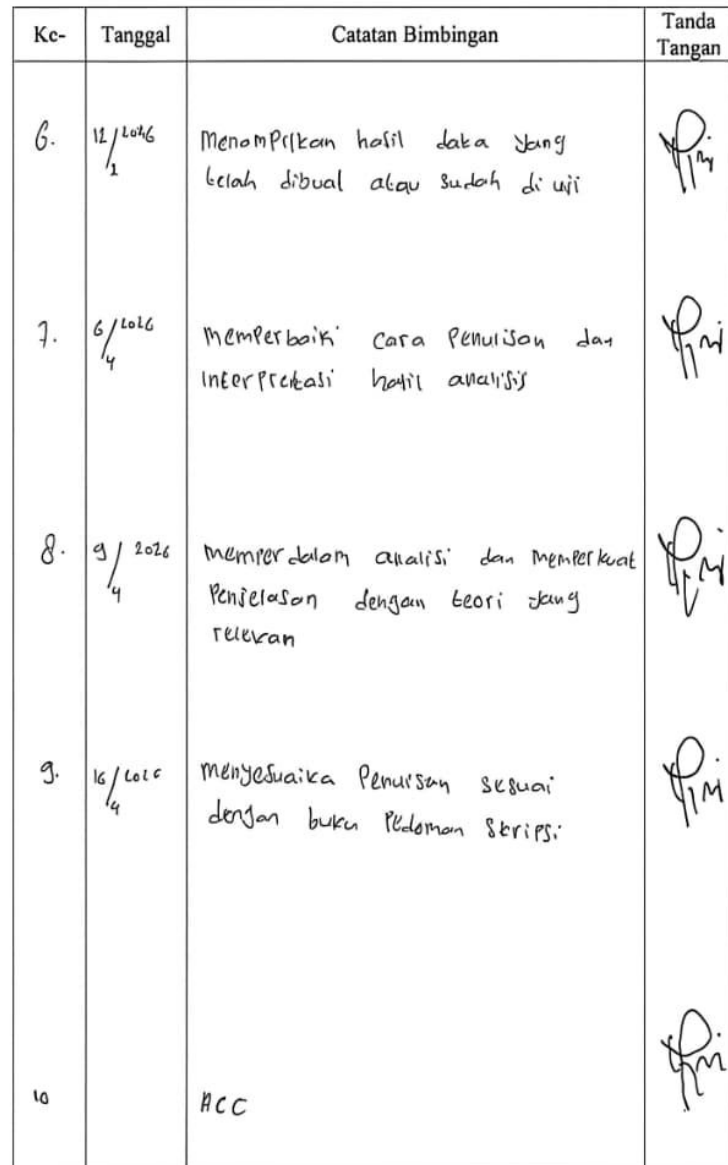 Ke- Tanggal Catatan Bimbingan Tanda Tangan
6. 12/1 2026 Menampilkan hasil data yang
telah dibuat atau sudah di uji
7. 6/4 2026 Memperbaiki cara Penulisan dan
Interpretasi hasil analisis
8. 9/4 2026 memperdalam analisi dan memperkuat
Penjelasan dengan teori yang
relevan
9. 16/4 2026 menyesuaika Penulisan sesuai
dengan buku Pedoman Skripsi
10 ACC